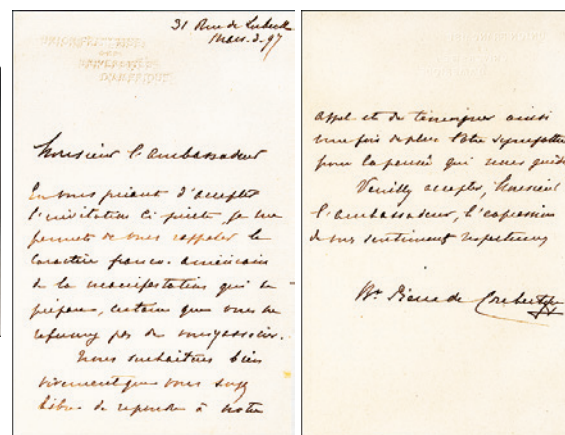 31 Rue de Lubeck
Mars. 3. 97
UNIVERSITÉS
Monsieur l'ambassadeur
En vous priant d'accepter
l'invitation ci jointe, je me
permets de vous rappeler le
caractère franco-américain
de la manifestation qui se
prépare, certain que vous ne
refuserez pas de vous y associer.
Nous souhaitons bien
vivement que vous soyez
libre de répondre à notre
appel et de témoigner ainsi
une fois de plus votre sympathie
pour la pensée qui nous guide
Veuillez accepter, Monsieur
l'ambassadeur, l'expression
de mes sentiments respectueux
Bn Pierre de Coubertin